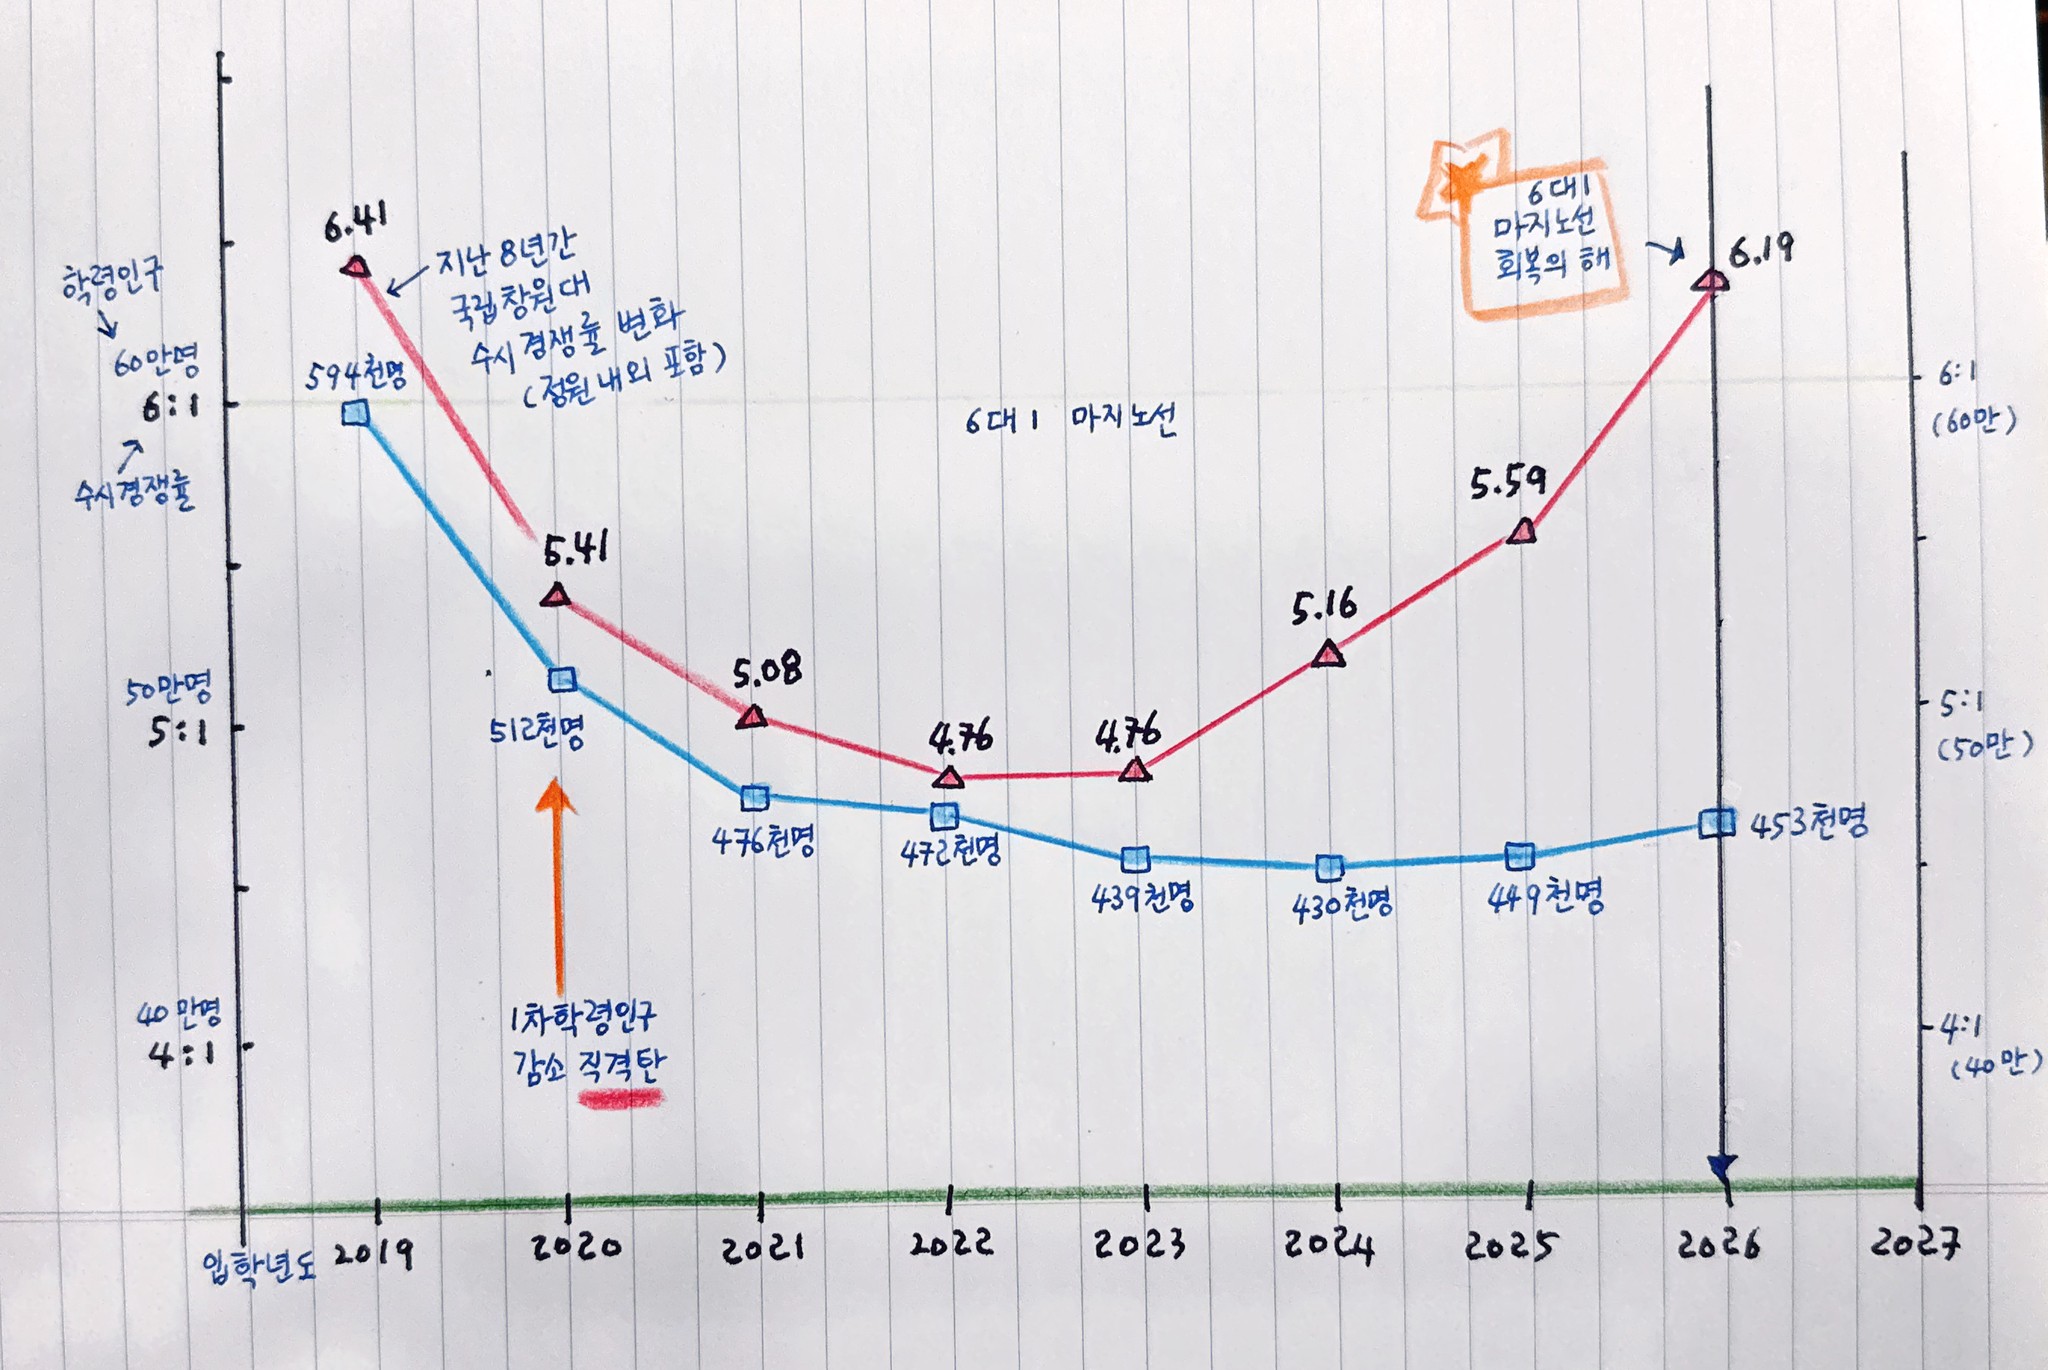 6.41
지난 8년간
국립창원대
수시경쟁률 변화
(정원내외 포함)
학령인구
60만명
6:1
수시경쟁률
594천명
6대1 마지노선
6대1
마지노선
회복의 해
6.19
6:1
(60만)
5.41
5.59
5.16
5.08
4.76
4.76
50만명
5:1
512천명
5:1
(50만)
476천명
472천명
439천명
430천명
449천명
453천명
40만명
4:1
1차학령인구
감소 직격탄
4:1
(40만)
입학년도 2019 2020 2021 2022 2023 2024 2025 2026 2027